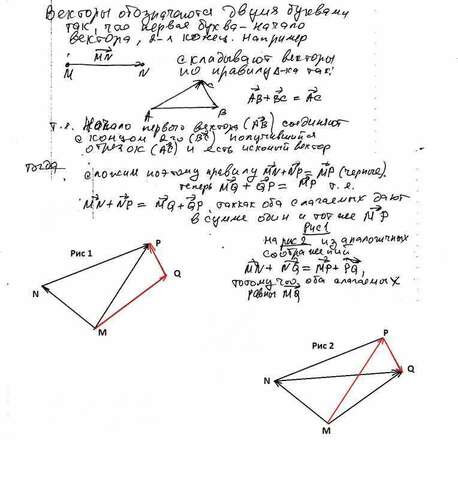 Векторы обозначаются двумя буквами
так, что первая буква - начало
вектора, 2-я конец. Например
MN
M N
складывают векторы
по правилу Δ-ка так:
C
A B
AB + BC = AC
т.е. Начало первого вектора (AB) соединяют
с концом 2го (BC) получившийся
отрезок (AC) и есть искомый вектор
тогда
сложим поэтому правилу MN+NP= MP (черные),
теперь MQ + QP = MP т.е.
MN+NP = MQ+QP, так как оба слагаемых дают
в сумме один и тот же MP
Рис 1
на рис 2 из аналогичных
соображений
MN + NQ = MP + PQ,
потому что оба слагаемых
равны MQ
Рис 1
P
Q
N
M
Рис 2
P
Q
N
M